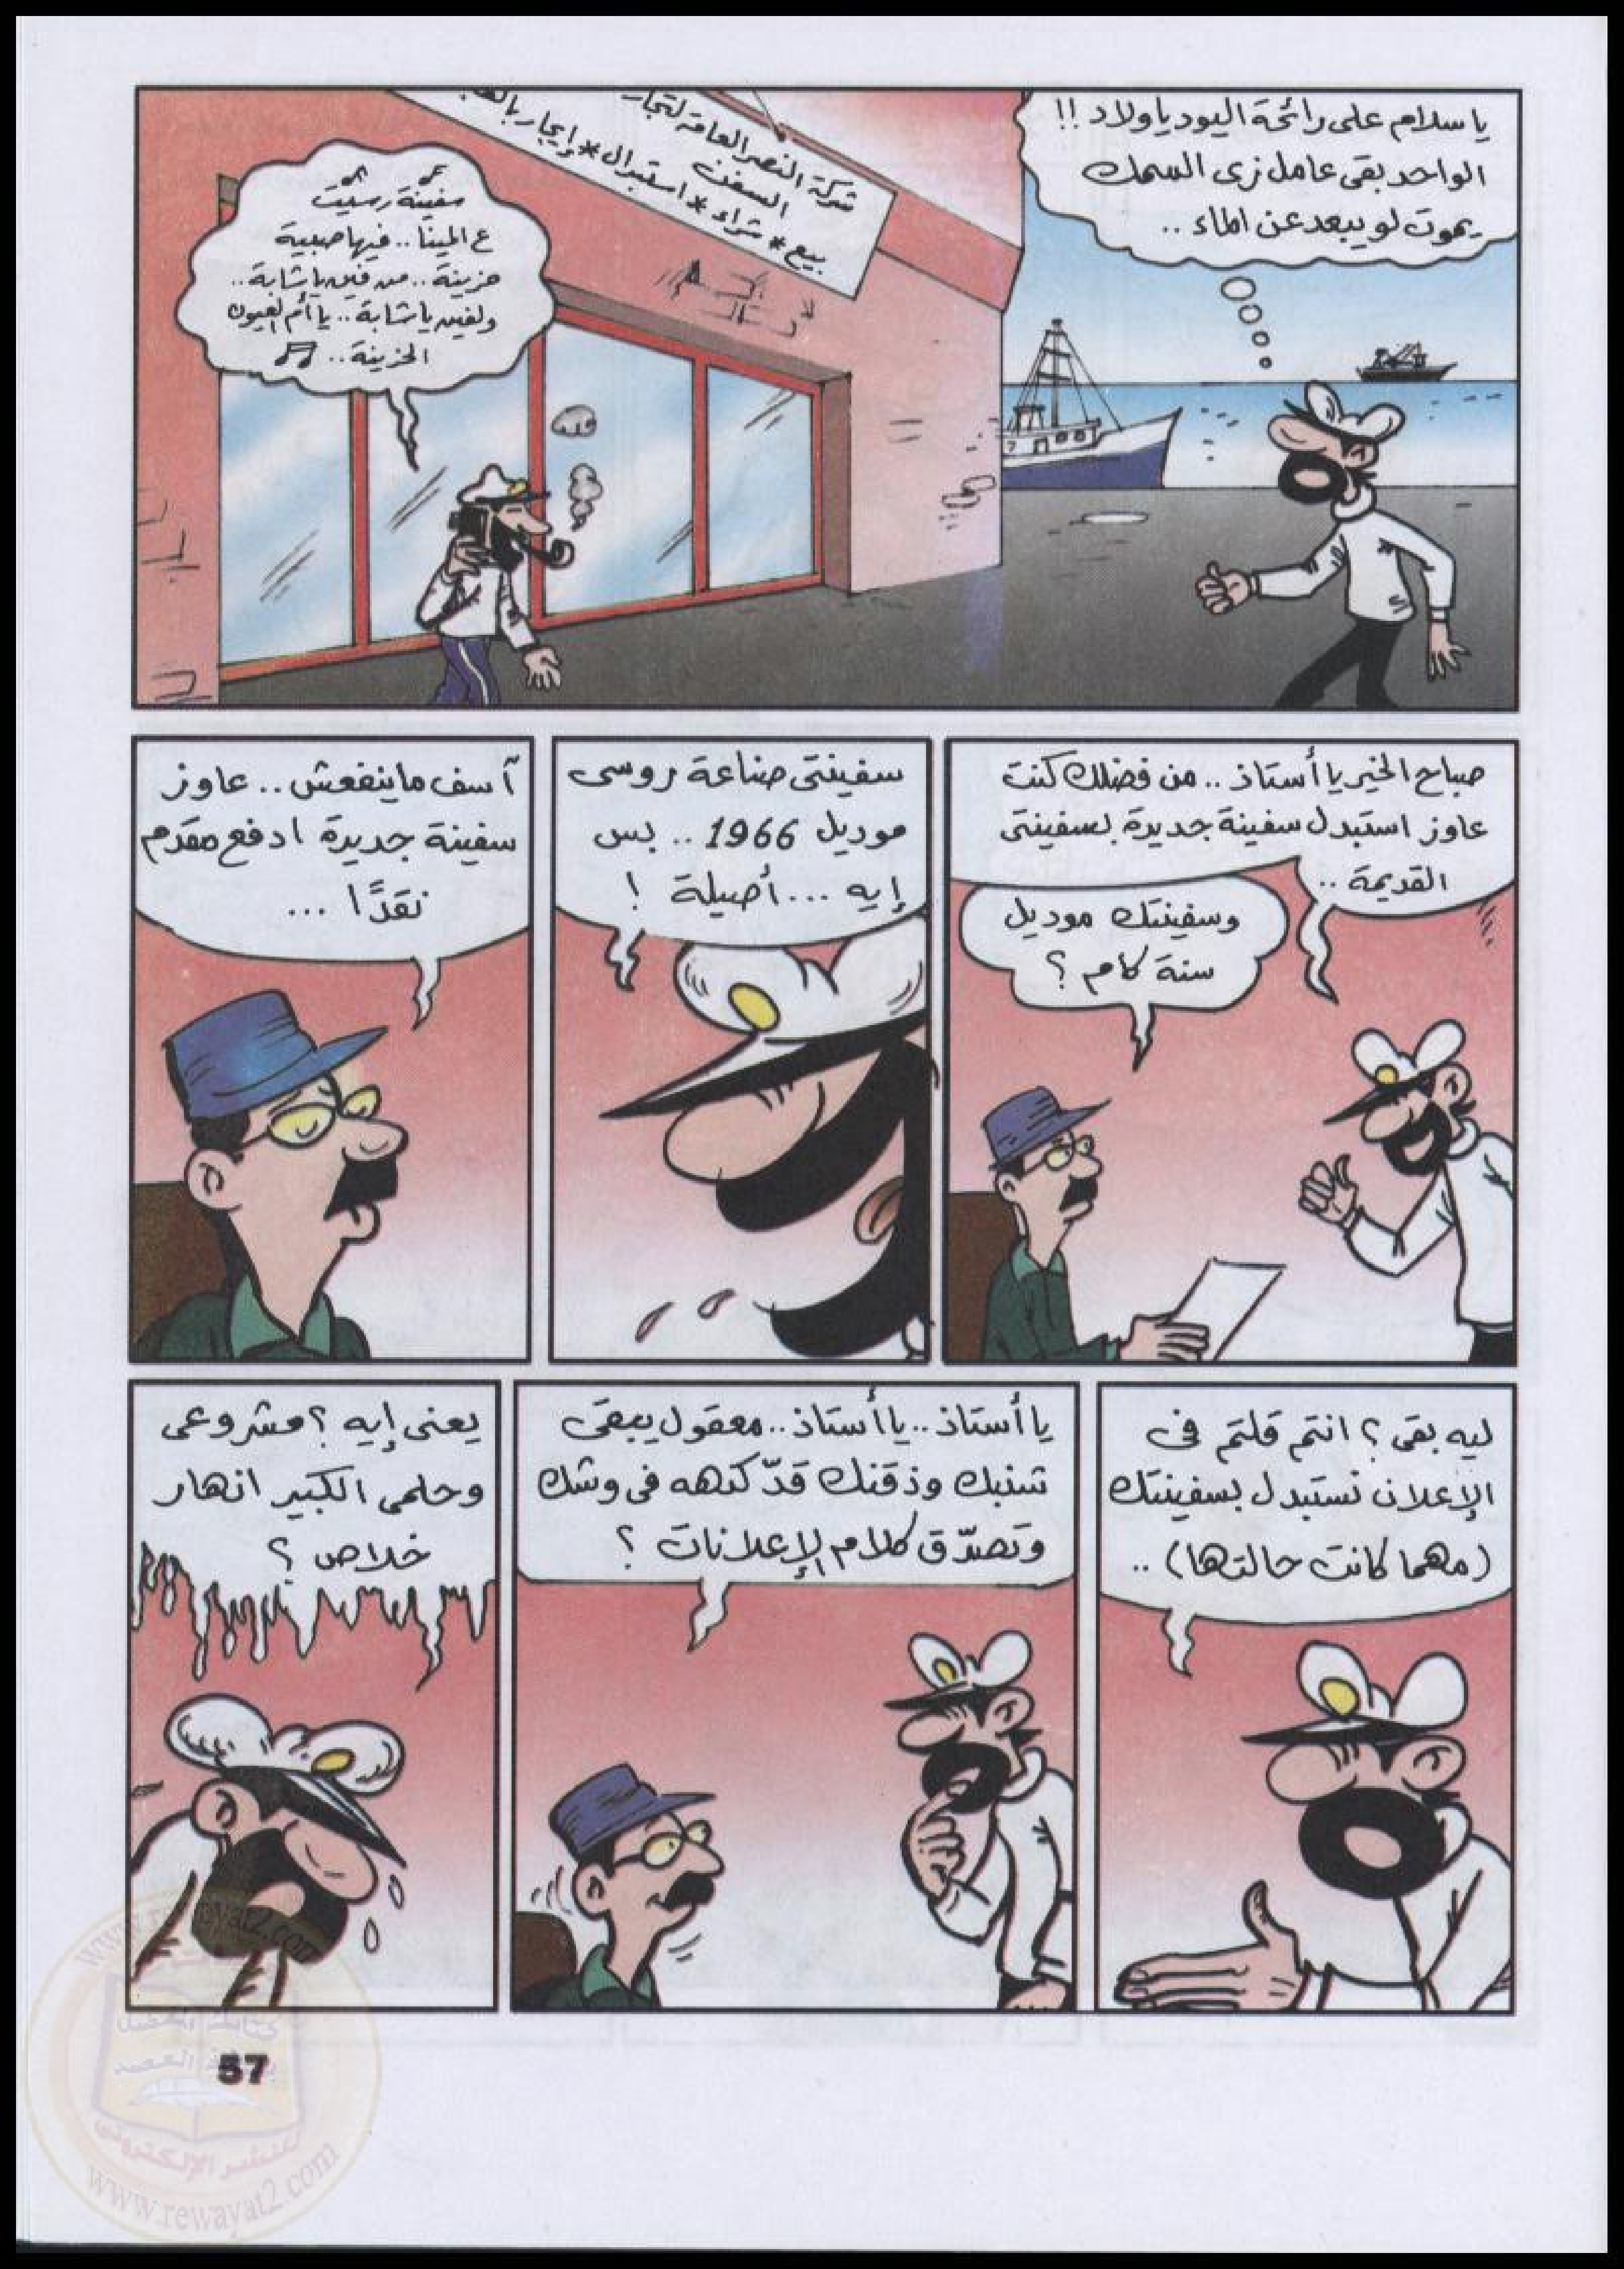 يا سلام على رائحة اليود يا ولاد !!
الواحد بقى عامل زى السمك
يموت لو يبعد عن الماء ..
شركة النصر العامة لتجار
السفن
بيع * شراء * استبدال * إيجار
سفينة رسيت
ع المينا .. فيها صبية
حزينة .. من فين يا شابة ..
ولفين يا شابة .. يا أم العيون
الحزينة ..
صباح الخير يا أستاذ .. من فضلك كنت
عاوز استبدل سفينة جديدة بسفينتى
القديمة ..
وسفينتك موديل
سنة كام ؟
سفينتى صناعة روسى
موديل 1966 .. بس
إيه ... أصيلة !
آسف ماينفعش .. عاوز
سفينة جديدة ادفع مقدم
نقدًا ...
ليه بقى ؟ انتم قلتم فى
الإعلان نستبدل بسفينتك
(مهما كانت حالتها) ..
يا أستاذ .. يا أستاذ .. معقول يبقى
شنبك وذقنك قدّ كدهه فى وشك
وتصدّق كلام الإعلانات ؟
يعنى إيه ؟ مشروعى
وحلمى الكبير انهار
خلاص ؟
57
للنشر الإلكترونى
www.rewayat2.com